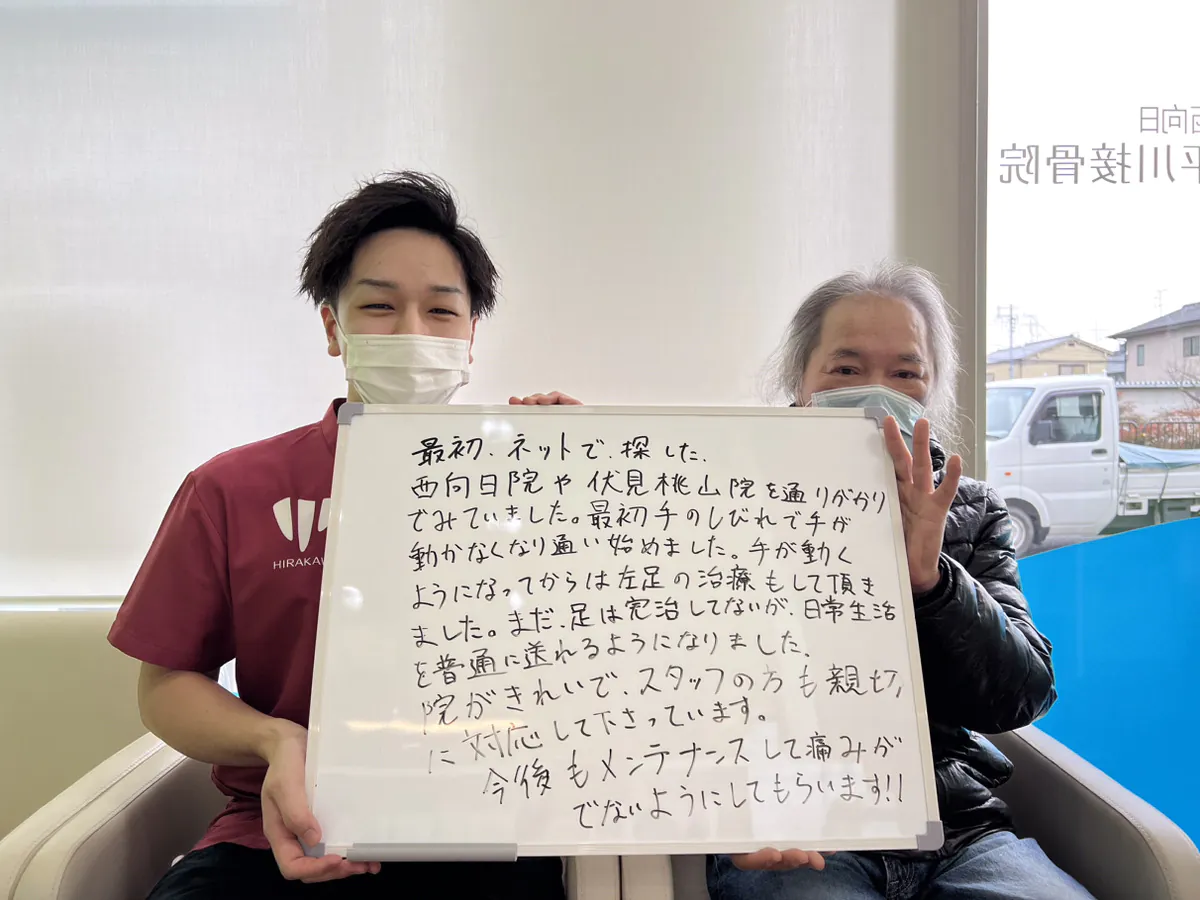 最初、ネットで、探した、
西向日院や伏見桃山院を通りがかり
でみていました。最初手のしびれで手が
動かなくなり通い始めました。手が動く
ようになってからは左足の治療もして頂き
ました。まだ、足は完治してないが、日常生活
を普通に送れるようになりました、
院がきれいで、スタッフの方も親切
に対応して下さっています。
今後もメンテナンスして痛みが
でないようにしてもらいます!!
HIRAKAW
西向日
平川接骨院